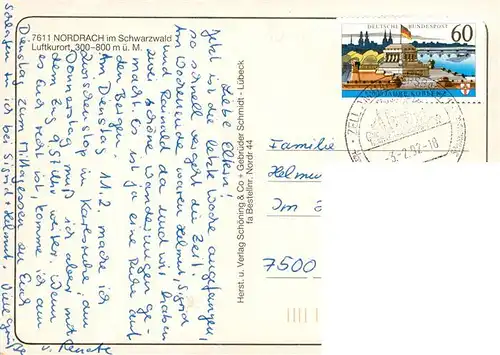 7611 NORDRACH im Schwarzwald
Luftkurort, 300-800 m ü. M.
Liebe Eltern!
Jetzt ist die letzte Woche angefangen,
so schnell vergeht die Zeit.
Am Wochenende waren Helmut, Sigrid
und Reinhold da und wir haben
zwei schöne Wanderungen ge-
macht. Es ist ja eine Ruhe auf
den Bergen.
Am Dienstag 11.2. mache ich
Zwischenstop in Karlsruhe, am
Donnerstag muß ich aber mit
dem Zug weiter. Wenn
es Euch recht ist, komme ich am
Dienstag zum Mittagessen zu Euch
bei Sigrid + Helmut. Viele Grüße
v. Renate
Herst. u. Verlag Schöning & Co + Gebrüder Schmidt - Lübeck
fa Bestellnr. Nordr 44
DEUTSCHE BUNDESPOST
60
2000 JAHRE KOBLENZ
ZELL
-3-2.92-18
Familie
Helmu
7500